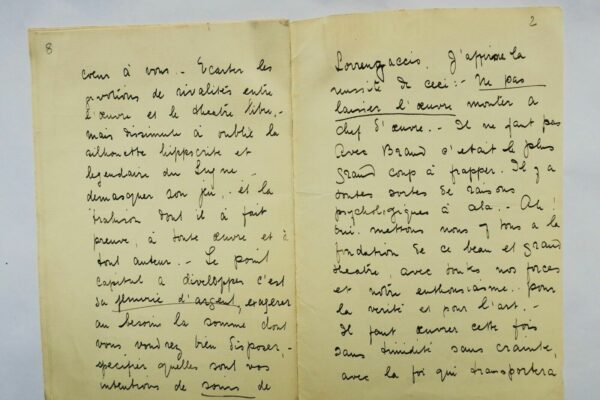 8
coeur à vous. - Ecarter les
questions de rivalités entre
l'œuvre et le theatre libre, -
mais dissimule à oublié la
silhouette hippocrite et
legendaire du Lugne -
demasquer son jeu, et la
trahison dont il à fait
preuve, à toute œuvre et à
tout auteur. - Le point
capital a développer c'est
sa penurie d'argent, exagerer
au besoin la somme dont
vous voudrez bien disposer, -
specifier quelles sont vos
intentions de sous de
2
Lorrenzaccio. J'approuve la
reussite de ceci : - Ne pas
laisser l'œuvre monter a
chef d'œuvre. - Il ne faut pas
Avec Brand c'etait le plus
grand coup à frapper. Il y a
toutes sortes de raisons
psychologiques à cela. - Ah !
oui mettons nous y tous a la
fondation de ce beau et grand
theatre, avec toutes nos forces
et notre enthousiasme. pour
la verité et pour l'art. -
Il faut œuvrer cette fois
sans timidité sans crainte,
avec la foi qui transportera